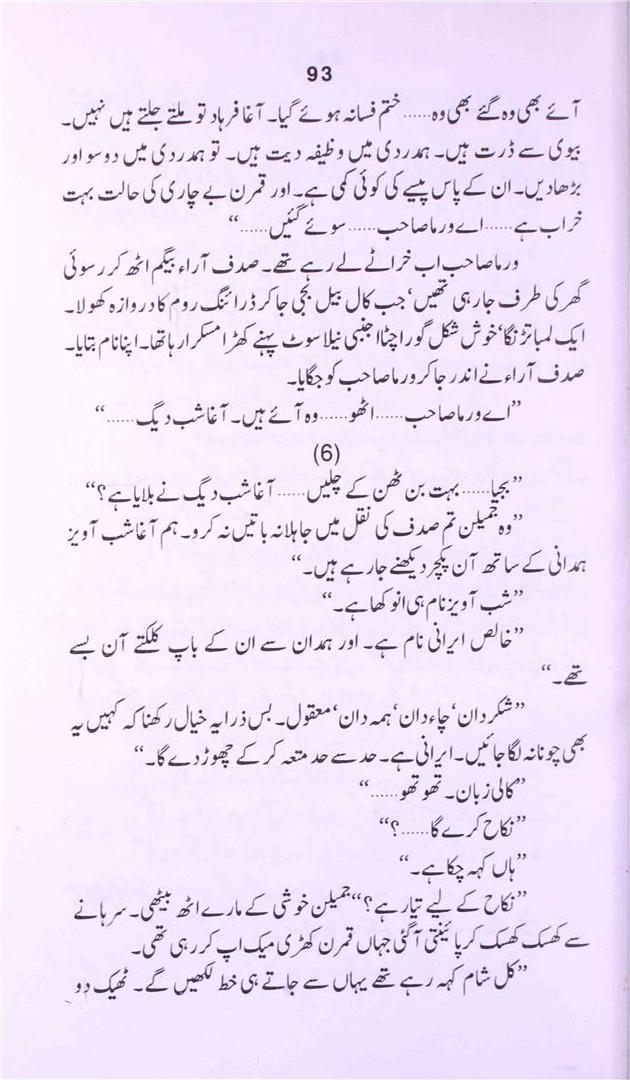 93
آئے بھی وہ گئے بھی وہ...... ختم فسانہ ہوئے گیا۔ آغا فرہاد تو ملتے جلتے ہیں نہیں۔
بیوی سے ڈرت ہیں۔ ہمدردی میں وظیفہ دیت ہیں۔ تو ہمدردی میں دو سو اور
بڑھا دیں۔ ان کے پاس پیسے کی کوئی کمی ہے۔ اور قمرن بے چاری کی حالت بہت
خراب ہے...... اے ورما صاحب...... سوئے گئیں......“
ورما صاحب اب خراٹے لے رہے تھے۔ صدف آراء بیگم اٹھ کر رسوئی
گھر کی طرف جا رہی تھیں‘ جب کال بیل بجی جا کر ڈرائنگ روم کا دروازہ کھولا۔
ایک لمبا تڑنگا‘ خوش شکل گورا چٹا اجنبی نیلا سوٹ پہنے کھڑا مسکرا رہا تھا۔ اپنا نام بتایا۔
صدف آراء نے اندر جا کر ورما صاحب کو جگایا۔
”اے ورما صاحب...... اٹھو...... وہ آئے ہیں۔ آغا شب دیگ......“
(6)
”بجیا...... بہت بن ٹھن کے چلیں...... آغا شب دیگ نے بلایا ہے؟“
”وہ جمیلن تم صدف کی نقل میں جاہلانہ باتیں نہ کرو۔ ہم آغا شب آویز
ہمدانی کے ساتھ آن پکچر دیکھنے جا رہے ہیں۔“
”شب آویز نام ہی انوکھا ہے۔“
”خالص ایرانی نام ہے۔ اور ہمدان سے ان کے باپ کلکتے آن بسے
تھے۔“
”شکر دان‘ چاء دان‘ ہمہ دان‘ معقول۔ بس ذرا یہ خیال رکھنا کہ کہیں یہ
بھی چونا نہ لگا جائیں۔ ایرانی ہے۔ حد سے حد متعہ کر کے چھوڑ دے گا۔“
”کالی زبان۔ تھو تھو......“
”نکاح کرے گا......؟“
”ہاں کہہ چکا ہے۔“
”نکاح کے لیے تیار ہے؟“ جمیلن خوشی کے مارے اٹھ بیٹھی۔ سرہانے
سے کھسک کھسک کر پائینتی آ گئی جہاں قمرن کھڑی میک اپ کر رہی تھی۔
”کل شام کہہ رہے تھے یہاں سے جاتے ہی خط لکھیں گے۔ ٹھیک دو